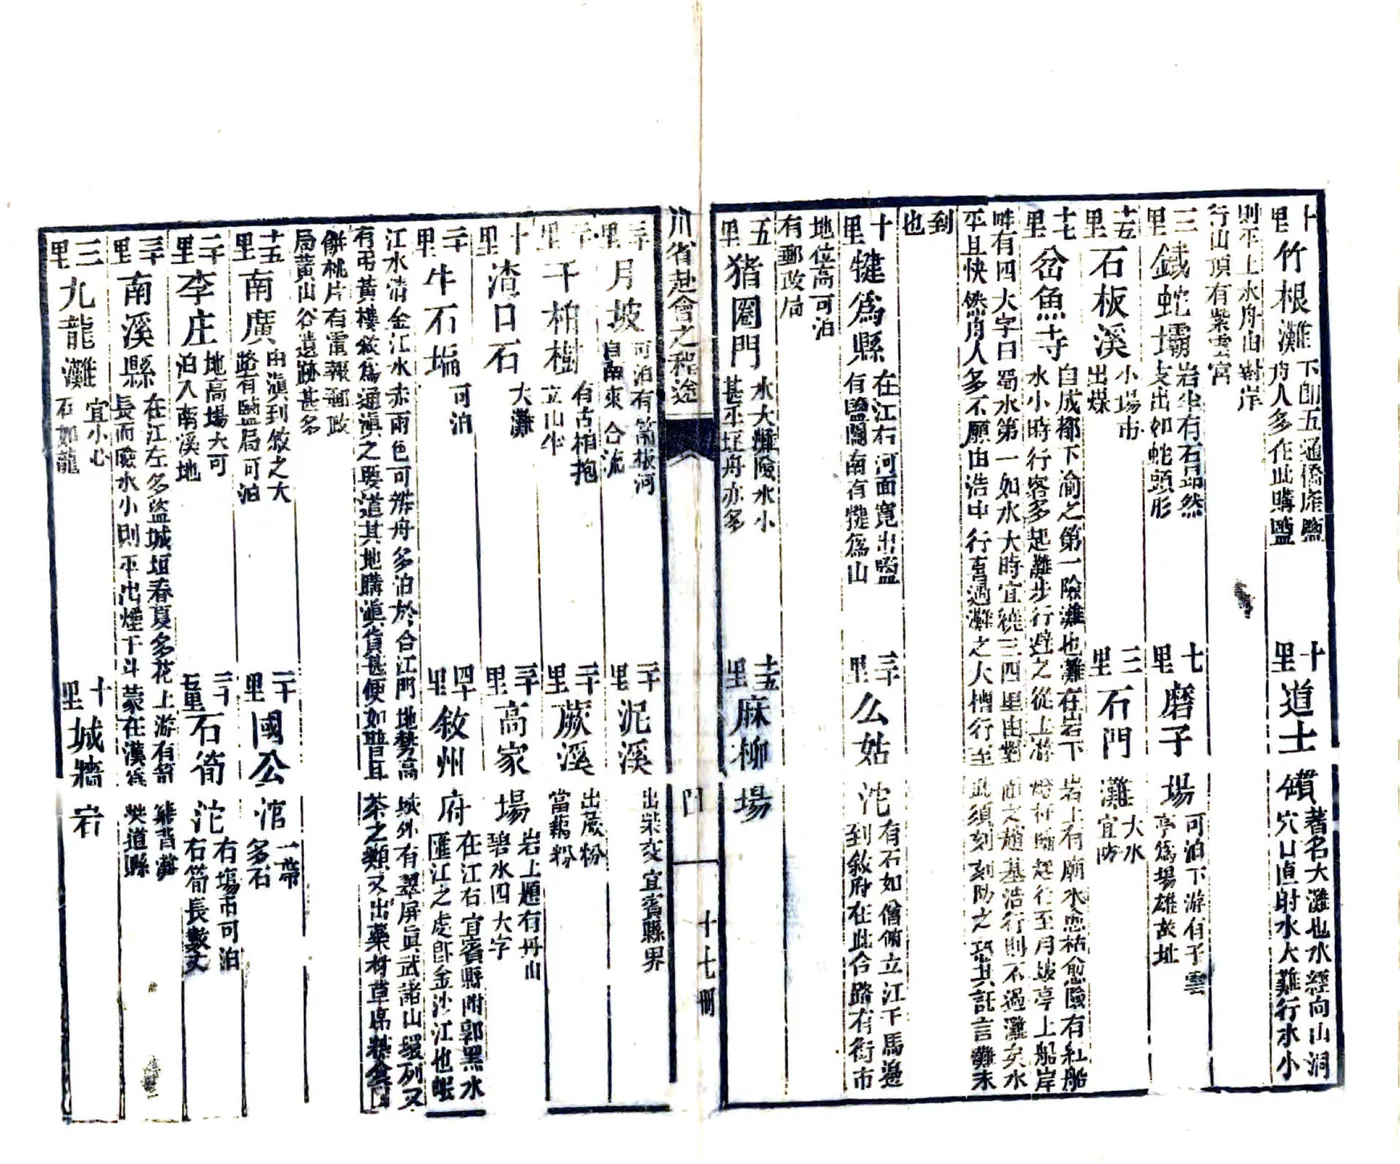 十里 竹根灘 下卽五通僑産鹽
舟人多在此購鹽
十里 道士鑕 著名大灘也水經向山洞
穴口直射水大難行水小
則平上水舟由對岸
行山頂有紫雲宮
三里 鐵蛇壩 岩半有石昂然
支出如蛇頭形
七里 磨子場 可泊下游有子雲
亭爲場雄故址
十五里 石板溪 小場市
出煤
三里 石門灘 大水
宜防
十七里 岔魚寺 自成都下渝之第一險灘也灘在岩下
水小時行客多起灘步行避之從上游
岩上有廟水愈枯愈險有紅船
行至月坡亭上船岸
唯有四大字曰蜀水第一如水大時宜繞三四里由對
面之趙基浩行則不過灘矣水
平且快然舟人多不願由浩中行直過灘之大槽行至
此須刻刻防之恐其託言灘未
到也
十里 犍爲縣 在江右河面寬出鹽
有鹽關南有犍爲山
三十里 么姑沱 有石如僧俯立江干馬邊
到敘府在此合路有街市
地位高可泊
有郵政局
五里 猪圈門 水大灘險水小
甚平埕舟亦多
十五里 麻柳場
川省赴會之程途
十七册
三十里 月坡 可泊有箭板河
自南來合流
二十里 泥溪 出柴炭宜賓縣界
二十里 干柏樹 有古柏抱
立山半
三十里 蕨溪 出蕨粉
當藕粉
十里 渣口石 大灘
三十里 高家場 岩上題有丹山
碧水四大字
二十里 牛石塥 可泊
四十里 敘州府 在江右宜賓縣附郭黑水
匯江之處卽金沙江也岷
江水清金江水赤兩色可辨舟多泊於合江門地勢高
城外有翠屏眞武諸山環列又
有弔黃樓敘爲通滇之要道其地購滇貨甚便如普洱
茶之類又出藥材草席糕食
餅桃片有電報郵政
局黃山谷遺跡甚多
十五里 南廣 由滇到敘之大
路有鹽局可泊
二十里 國公沱 一帶
多石
二十里 李庄 地高場大可
泊入南溪地
二十里 石筍沱 右塲市可泊
右筍長數丈
三十里 南溪縣 在江左多盜城垣春夏多花上游有筲
長而險水小則平出煙干斗蒙在漢爲
僰道縣
三里 九龍灘 宜小心
石如龍
十里 城牆岩